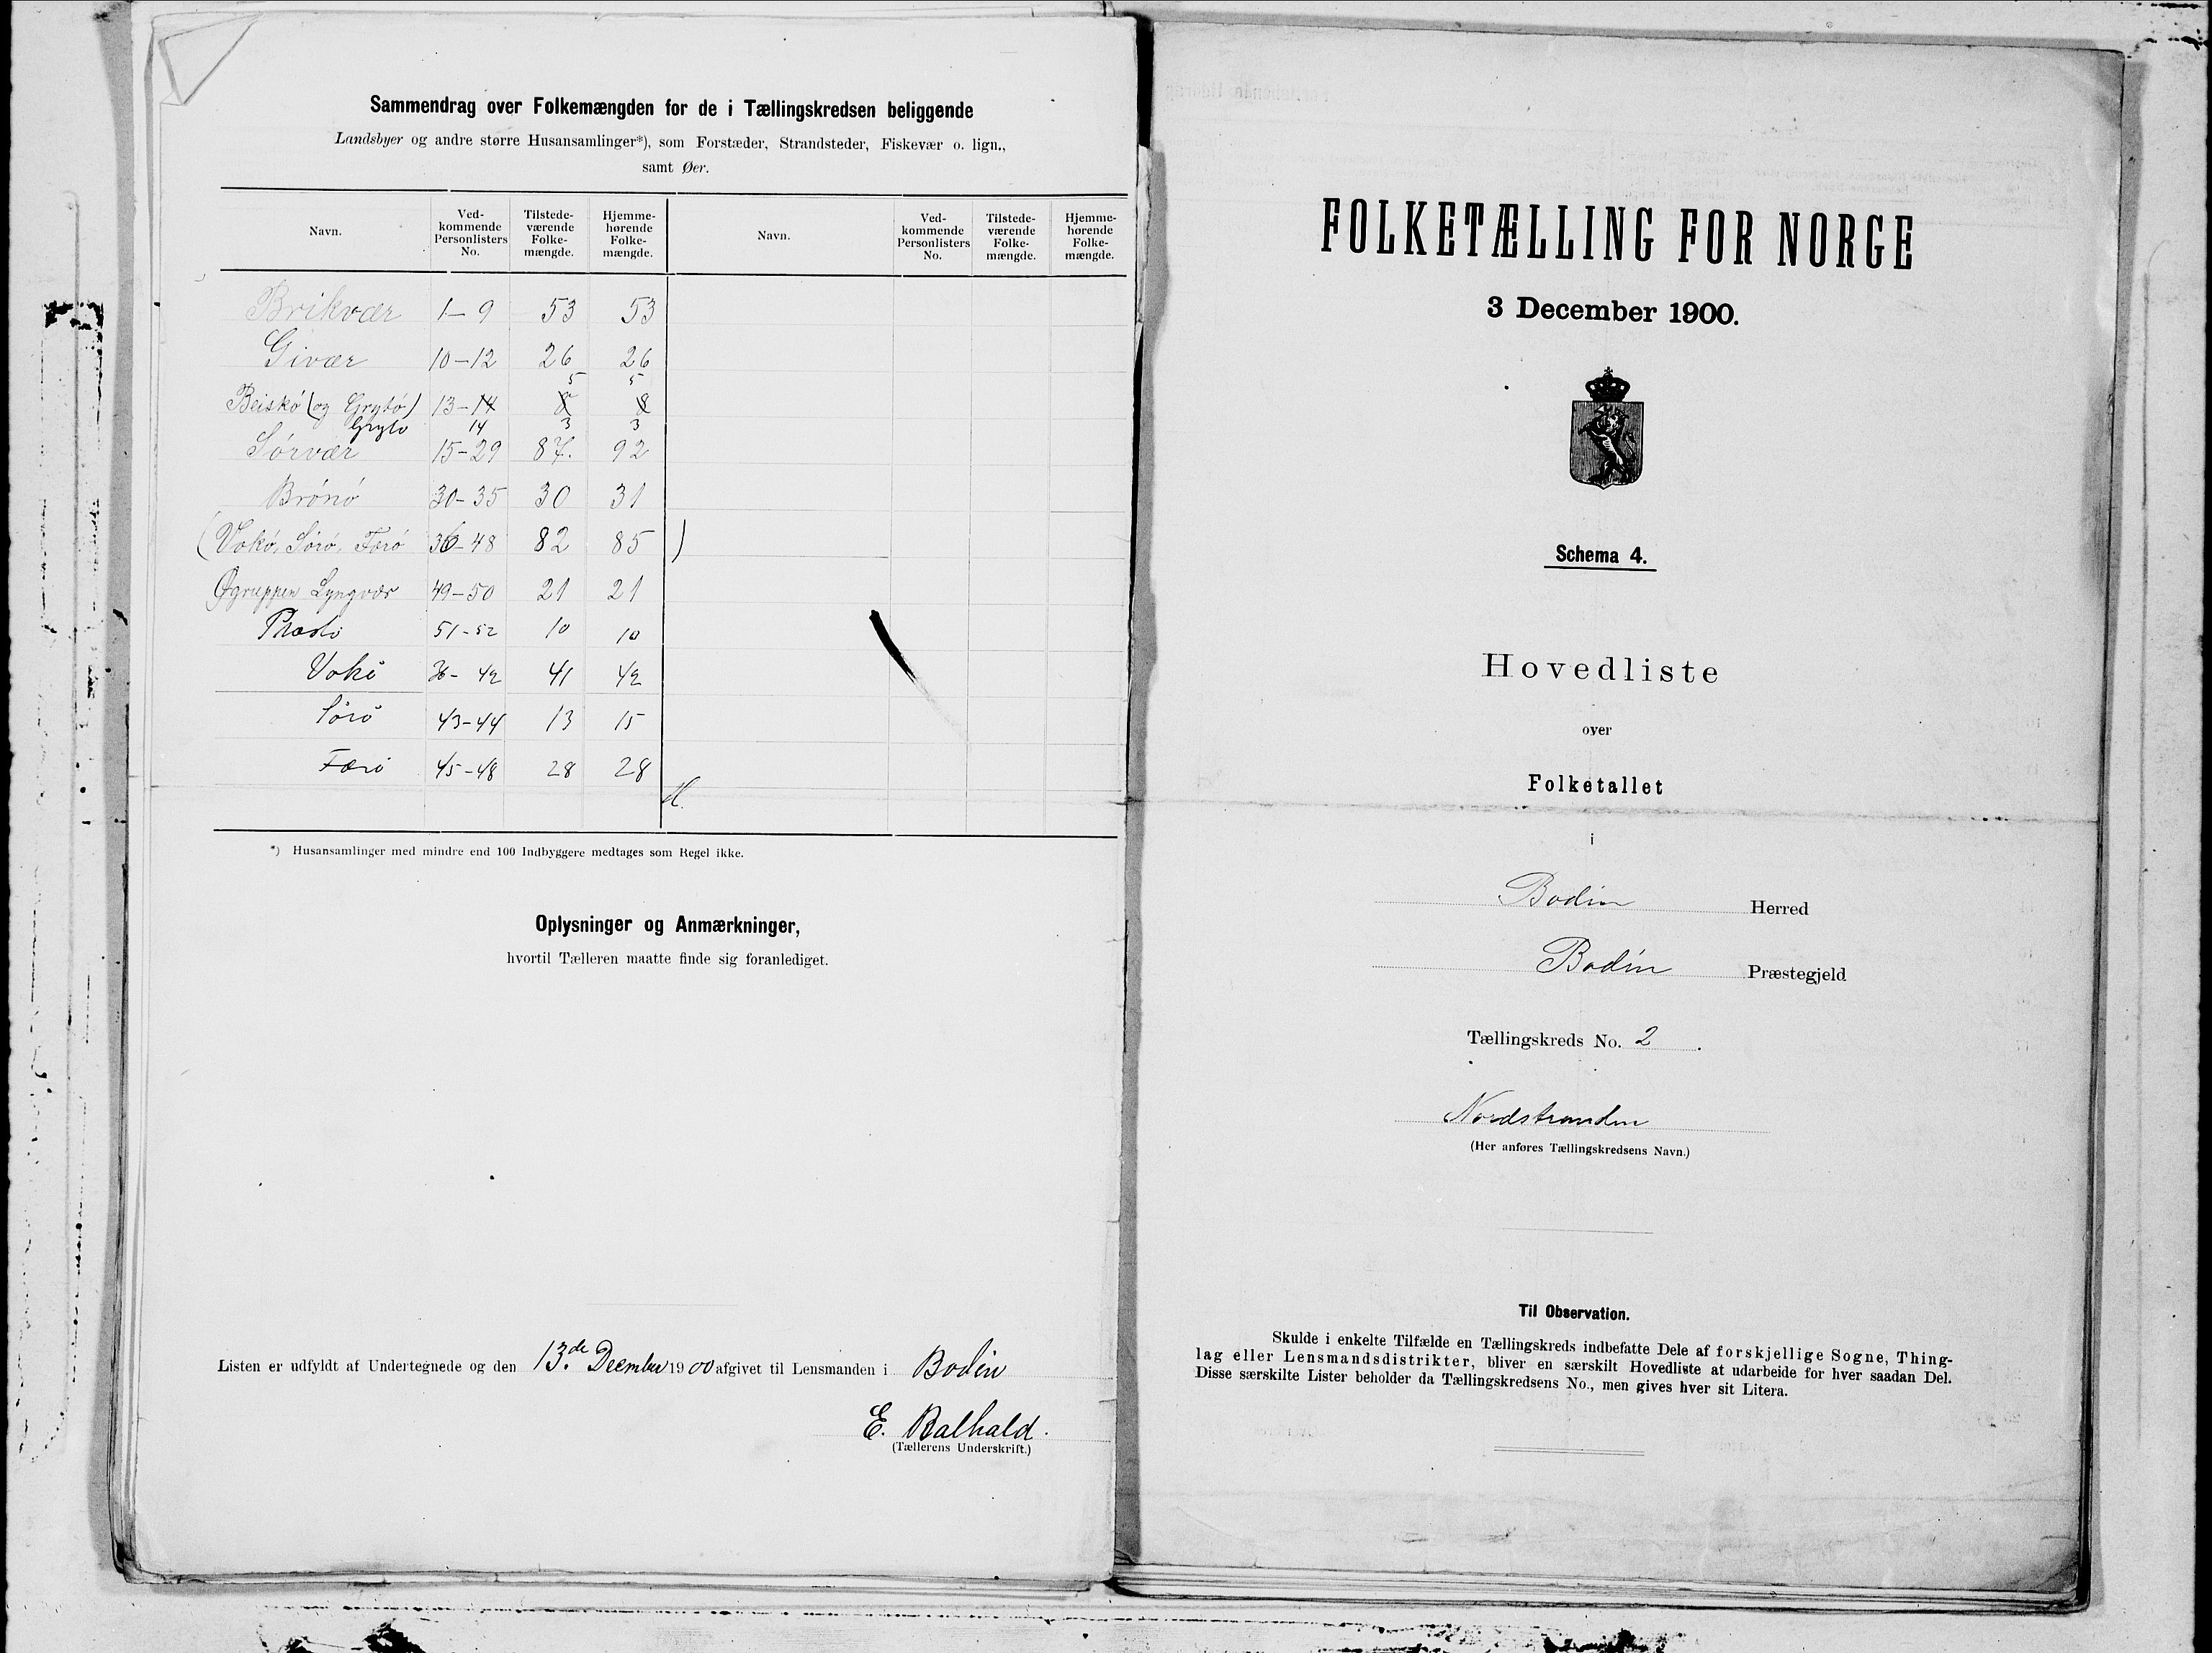 Sammendrag over Folkemængden for de i Tællingskredsen beliggende
Landsbyer og andre større Husansamlinger*), som Forstæder, Strandsteder, Fiskevær o. lign.,
samt Øer.
Navn. Ved-kommende Personlisters No. Tilstede-værende Folke-mængde. Hjemme-hørende Folke-mængde. Navn. Ved-kommende Personlisters No. Tilstede-værende Folke-mængde. Hjemme-hørende Folke-mængde.
Brikvær 1-9 53 53
Givær 10-12 26 26
5 5
Beiskø (og Grytø) 13-14 8 8
Grytø 14 3 3
Sørvær 15-29 87. 92
Brønø 30-35 30 31
(Vokø, Sørø, Færø 36-48 82 85 )
Øgruppen Lyngvær 49-50 21 21
Præstø 51-52 10 10
Vokø 36-42 41 42
Sørø 43-44 13 15
Færø 45-48 28 28
*) Husansamlinger med mindre end 100 Indbyggere medtages som Regel ikke.
Oplysninger og Anmærkninger,
hvortil Tælleren maatte finde sig foranlediget.
Listen er udfyldt af Undertegnede og den 13.de December 1900 afgivet til Lensmanden i Bodin
E. Balhald.
(Tællerens Underskrift.)
FOLKETÆLLING FOR NORGE
3 December 1900.
Schema 4.
Hovedliste
over
Folketallet
i
Bodin Herred
Bodin Præstegjeld
Tællingskreds No. 2.
Nordstranden
(Her anføres Tællingskredsens Navn.)
Til Observation.
Skulde i enkelte Tilfælde en Tællingskreds indbefatte Dele af forskjellige Sogne, Thing-
lag eller Lensmandsdistrikter, bliver en særskilt Hovedliste at udarbeide for hver saadan Del.
Disse særskilte Lister beholder da Tællingskredsens No., men gives hver sit Litera.